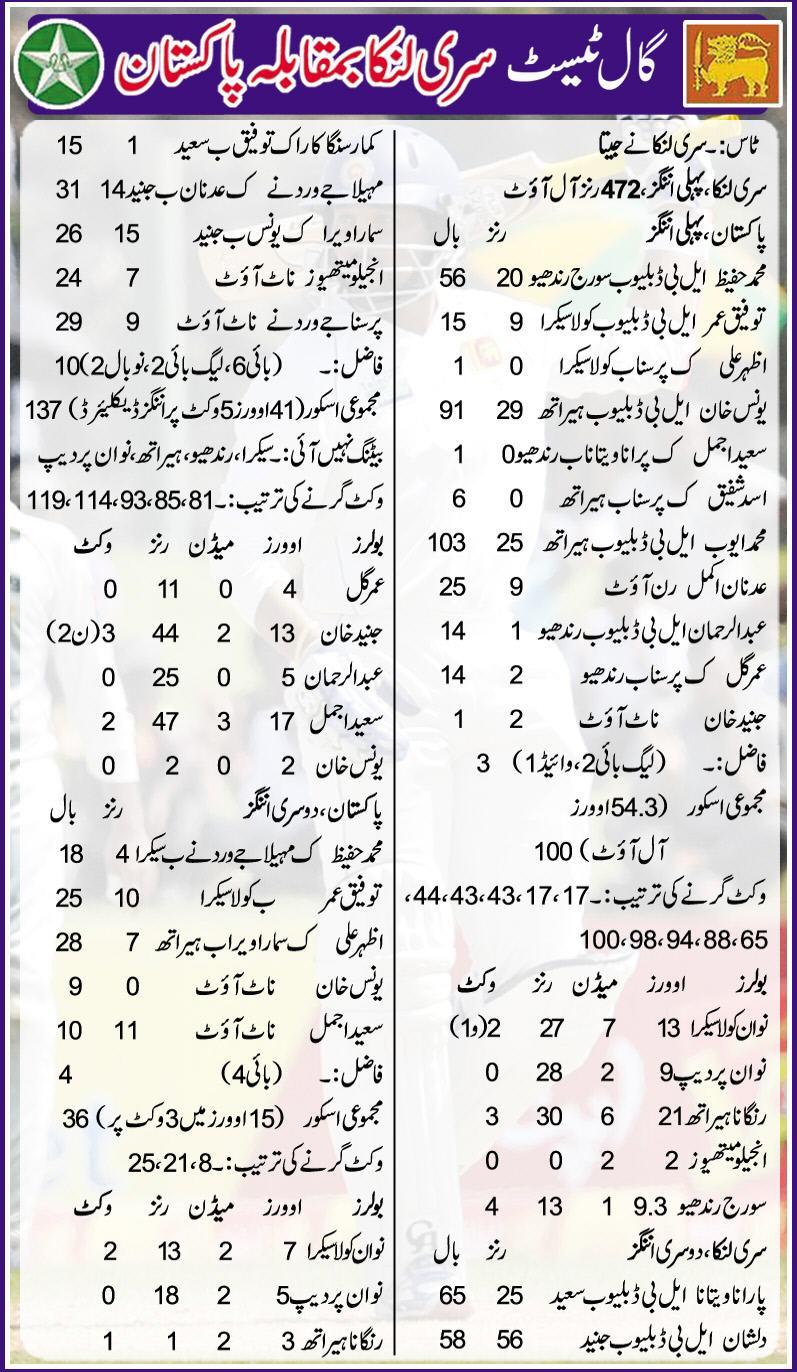 گال ٹیسٹ سری لنکا بمقابلہ پاکستان
ٹاس:۔سری لنکا نے جیتا
سری لنکا، پہلی اننگز، 472 رنز آل آؤٹ
پاکستان، پہلی اننگز رنز بال
محمد حفیظ ایل بی ڈبلیو ب سورج رندھیو 20 56
توفیق عمر ایل بی ڈبلیو ب کولاسیکرا 9 15
اظہر علی ک پرسنا ب کولاسیکرا 0 1
یونس خان ایل بی ڈبلیو ب ہیراتھ 29 91
سعید اجمل ک پراناویتانا ب رندھیو 0 1
اسد شفیق ک پرسنا ب ہیراتھ 0 6
محمد ایوب ایل بی ڈبلیو ب ہیراتھ 25 103
عدنان اکمل رن آؤٹ 9 25
عبدالرحمان ایل بی ڈبلیو ب رندھیو 1 14
عمر گل ک پرسنا ب رندھیو 2 14
جنید خان ناٹ آؤٹ 2 1
فاضل:۔ (لیگ بائی 2، وائیڈ 1) 3
مجموعی اسکور (54.3 اوورز
آل آؤٹ) 100
وکٹ گرنے کی ترتیب:۔17، 17، 43، 43، 44،
65، 88، 94، 98، 100
بولرز اوورز میڈن رنز وکٹ
نوان کولاسیکرا 13 7 27 2(و1)
نوان پردیپ 9 2 28 0
رنگانا ہیراتھ 21 6 30 3
انجیلو میتھیوز 2 2 0 0
سورج رندھیو 9.3 1 13 4
سری لنکا، دوسری اننگز رنز بال
پاراناویتانا ایل بی ڈبلیو ب سعید 25 65
دلشان ایل بی ڈبلیو ب جنید 56 58
کمار سنگاکارا ک توفیق ب سعید 1 15
مہیلا جے وردنے ک عدنان ب جنید 14 31
سماراویرا ک یونس ب جنید 15 26
انجیلو میتھیوز ناٹ آؤٹ 7 24
پرسنا جے وردنے ناٹ آؤٹ 9 29
فاضل:۔ (بائی 6، لیگ بائی 2، نوبال 2) 10
مجموعی اسکور (41 اوورز 5 وکٹ پر اننگز ڈیکلیئرڈ) 137
بیٹنگ نہیں آئی:۔سیکرا، رندھیو، ہیراتھ، نوان پردیپ
وکٹ گرنے کی ترتیب:۔81، 85، 93، 114، 119
بولرز اوورز میڈن رنز وکٹ
عمر گل 4 0 11 0
جنید خان 13 2 44 3(ن2)
عبدالرحمان 5 0 25 0
سعید اجمل 17 3 47 2
یونس خان 2 0 2 0
پاکستان، دوسری اننگز رنز بال
محمد حفیظ ک مہیلا جے وردنے ب سیکرا 4 18
توفیق عمر ب کولاسیکرا 10 25
اظہر علی ک سماراویرا ب ہیراتھ 7 28
یونس خان ناٹ آؤٹ 0 9
سعید اجمل ناٹ آؤٹ 11 10
فاضل:۔ (بائی 4) 4
مجموعی اسکور (15 اوورز میں 3 وکٹ پر) 36
وکٹ گرنے کی ترتیب:۔8، 21، 25
بولرز اوورز میڈن رنز وکٹ
نوان کولاسیکرا 7 2 13 2
نوان پردیپ 5 2 18 0
رنگانا ہیراتھ 3 2 1 1